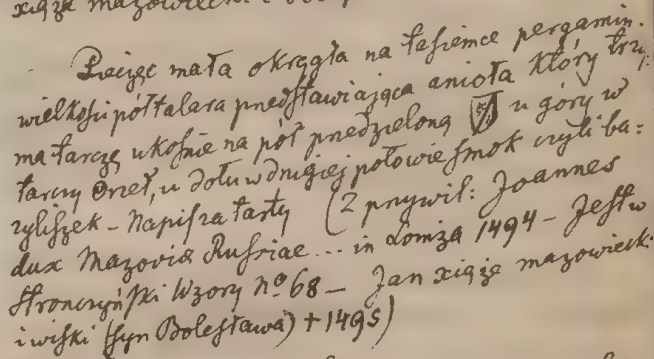 xiąże mazowiecki
- Pieczęc mała okrągła na taſiemce pergamin.
wielkoſci półtalara przedſtawiająca anioła który trzy:
ma tarczę ukoſnie na pół przedzieloną u góry w
tarczy Orzeł, u dołu w drugiej połowie ſmok czyli ba:
zyliſzek - Napiſ zatarty (z przywil: Joannes
dux Mazoviæ Ruſsiae ... in Lomża 1494 - Jeſt w
Stronczyńſki Wzory No 68 - Jan xiąże mazowiecki
i wiſki (ſyn Boleſława) + 1495)